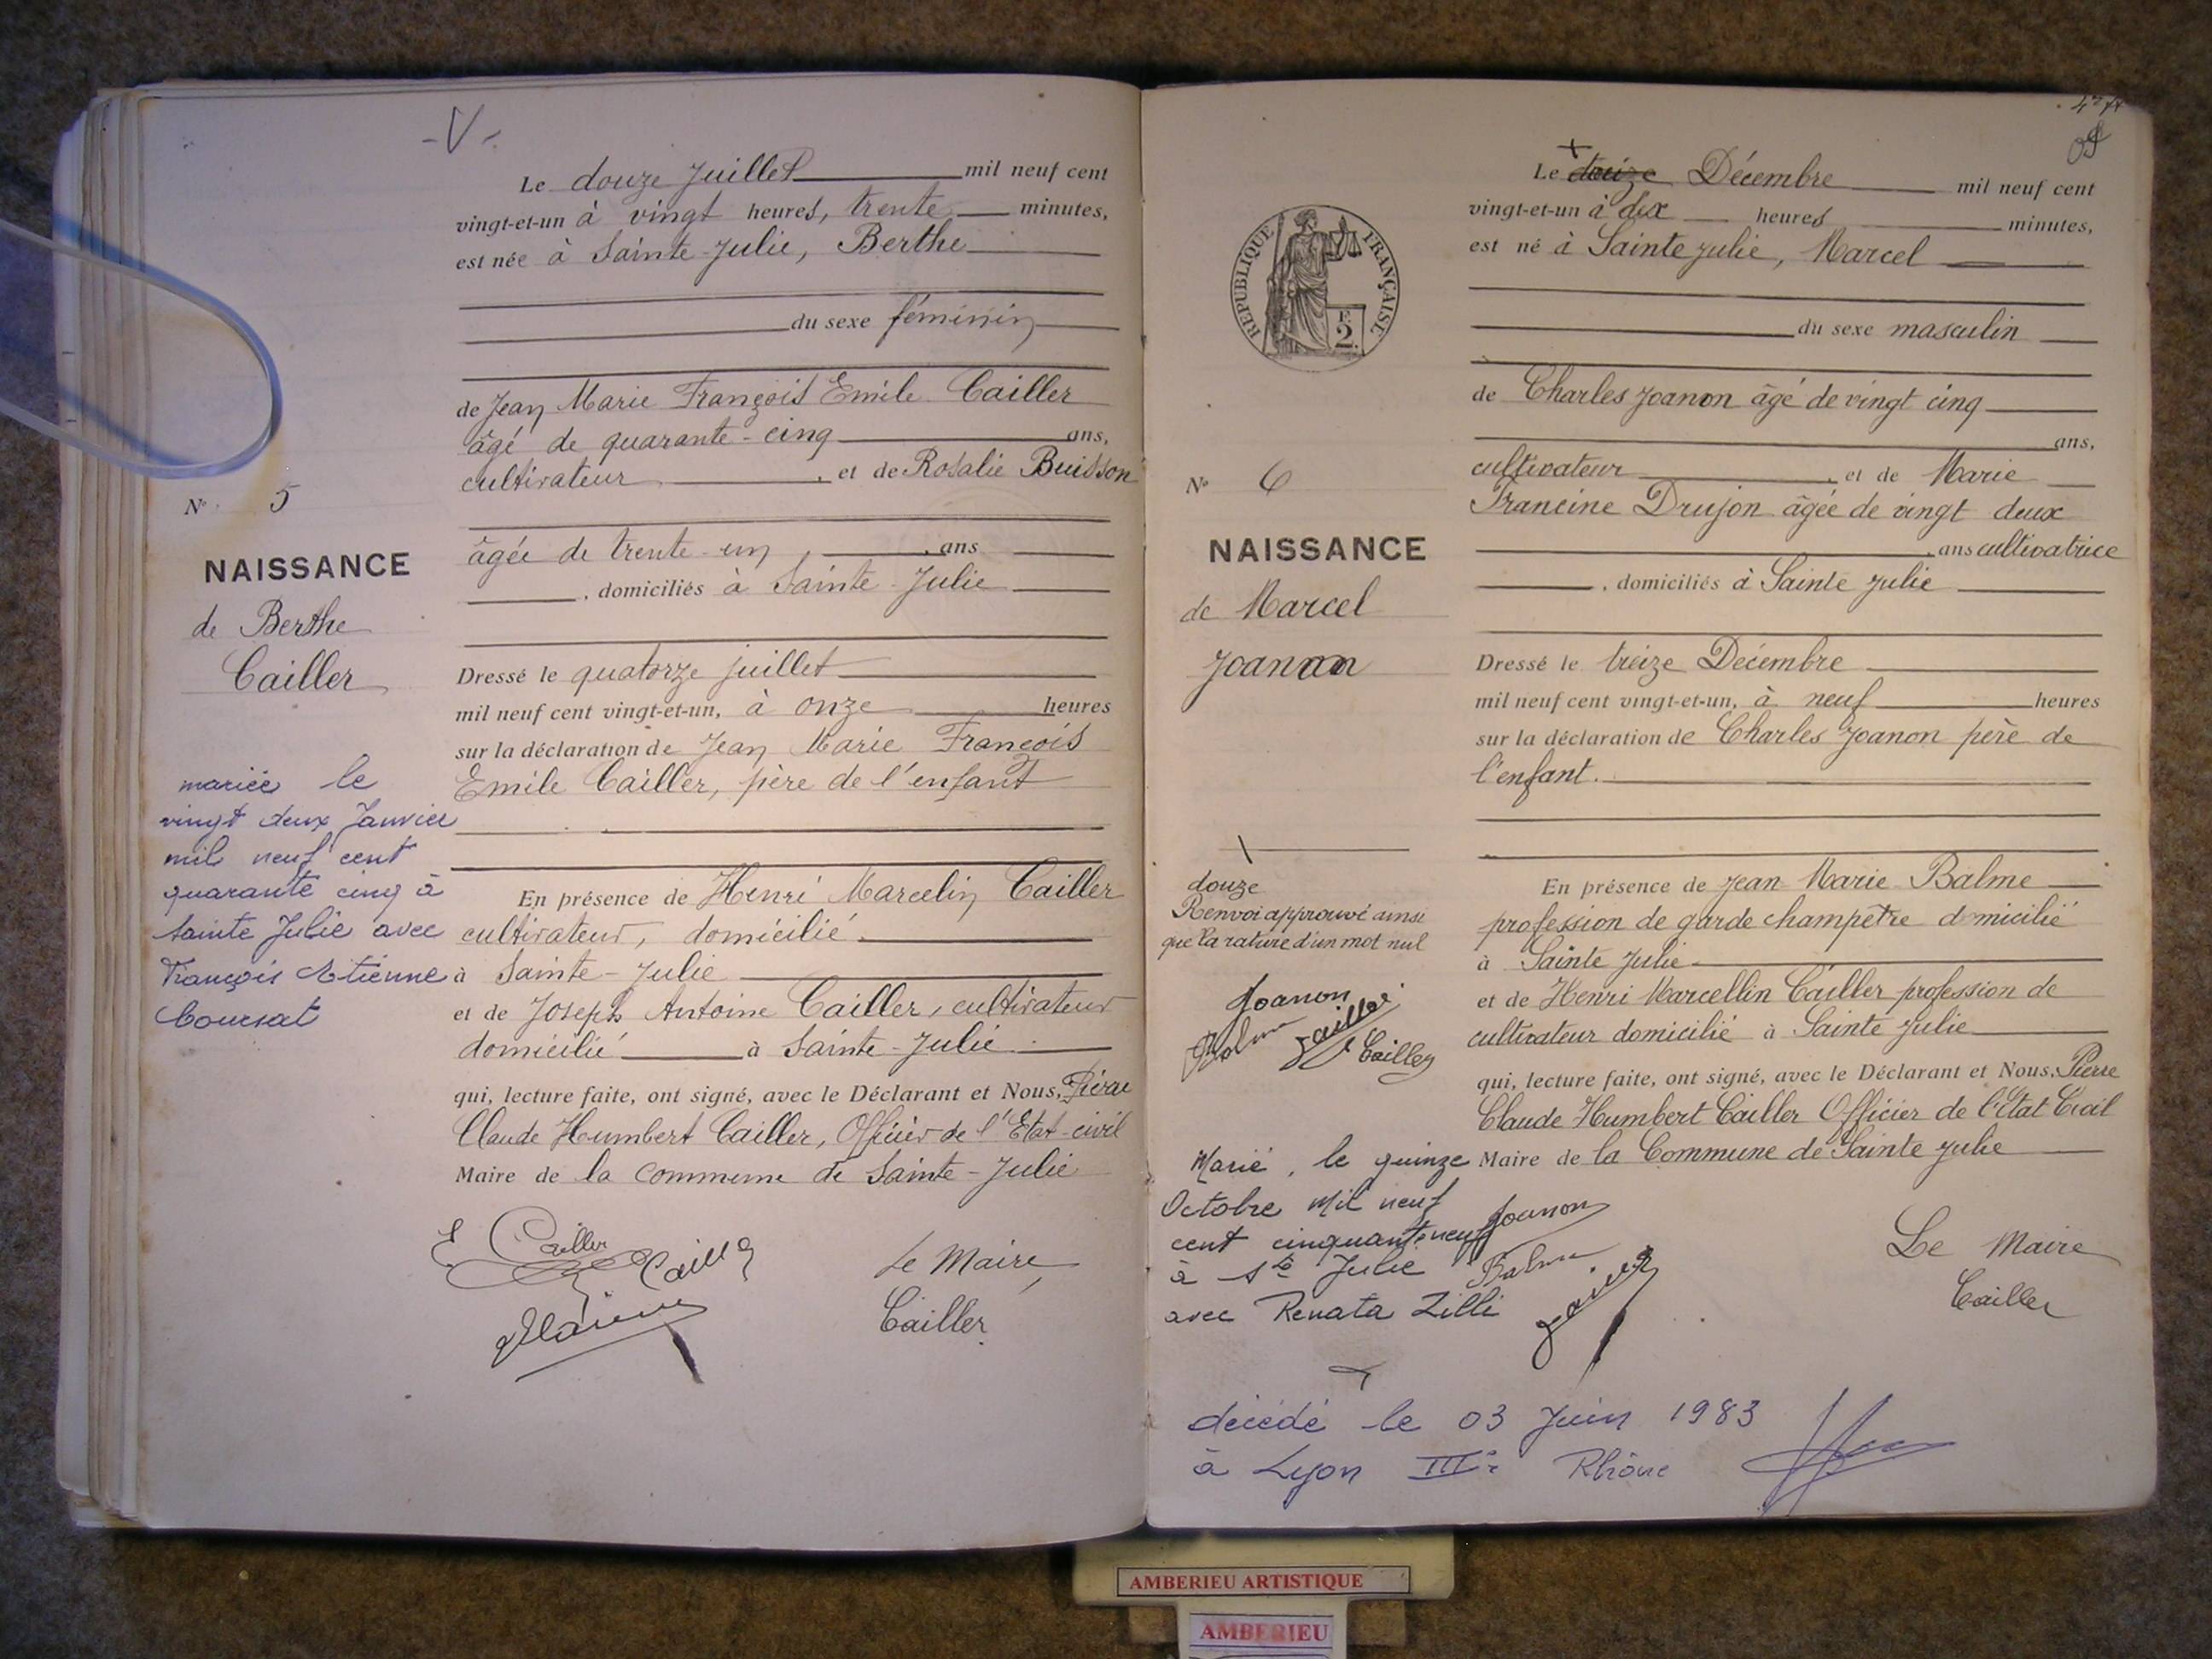 - V -
Le douze Juillet mil neuf cent
vingt-et-un à vingt heures, trente minutes,
est née à Sainte-Julie, Berthe
du sexe féminin
de Jean Marie François Emile Cailler
âgé de quarante-cinq ans,
cultivateur, et de Rosalie Buisson
âgée de trente-un, ans
, domiciliés à Sainte-Julie
Dressé le quatorze juillet
mil neuf cent vingt-et-un, à onze heures
sur la déclaration de Jean Marie François
Emile Cailler, père de l'enfant
En présence de Henri Marcelin Cailler
cultivateur, domicilié
à Sainte-Julie
et de Joseph Antoine Cailler, cultivateur
domicilié à Sainte-Julie
qui, lecture faite, ont signé, avec le Déclarant et Nous, Pierre
Claude Humbert Cailler, Officier de l'Etat-civil
Maire de la commune de Sainte-Julie
E Cailler
Cailler
Le Maire,
Cailler
N° 5
NAISSANCE
de Berthe
Cailler
mariée le
vingt deux Janvier
mil neuf cent
quarante cinq à
Sainte Julie avec
François Etienne
Coursat
Le Décembre mil neuf cent
vingt-et-un à dix heures minutes,
est né à Sainte Julie, Marcel
du sexe masculin
de Charles Joanon âgé de vingt cinq
ans,
cultivateur, et de Marie
Francine Drujon âgée de vingt deux
, ans cultivatrice
, domiciliés à Sainte Julie
Dressé le treize Décembre
mil neuf cent vingt-et-un, à neuf heures
sur la déclaration de Charles Joanon père de
l'enfant.
En présence de Jean Marie Balme
profession de garde champêtre domicilié
à Sainte Julie
et de Henri Marcellin Cailler profession de
cultivateur domicilié à Sainte Julie
qui, lecture faite, ont signé, avec le Déclarant et Nous, Pierre
Claude Humbert Cailler Officier de l'Etat Civil
Maire de la Commune de Sainte Julie
Joanon
Balme
Le Maire
Cailler
REPUBLIQUE FRANÇAISE
F.
2
N° 6
NAISSANCE
de Marcel
Joanon
douze
Renvoi approuvé ainsi
que la rature d'un mot nul
Joanon
Balme
Cailler
Cailler
Marié, le quinze
Octobre Mil neuf
cent cinquante neuf
à Ste Julie
avec Renata Zilli
décédé le 03 Juin 1983
à Lyon IIIe Rhône
AMBERIEU ARTISTIQUE
AMBERIEU